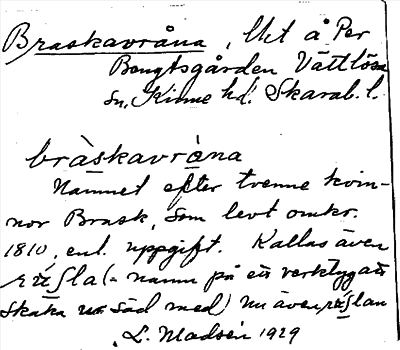 Braskavråna, Ukt å Per
Bengtsgården Vättlösa
sn, Kinne hd. Skarab. l.
bràskavrå̀na
Namnet efter tvenne kvin-
nor Brask, som levt omkr.
1810, enl. uppgift. Kallas även
(= namn på ett verktyg att
skaka ur säd med) nu även
L. Madsén 1929